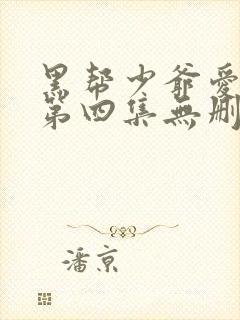 黑帮少爷爱
第四集無删
潘京